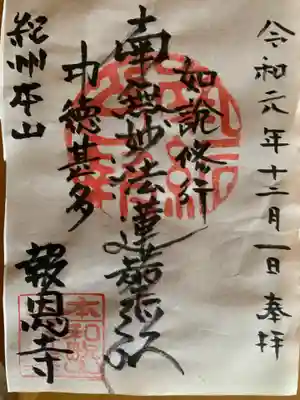 令和元年十二月一日奉拝
如説修行
南無妙法蓮華経
功徳甚多
紀州本山
報恩寺